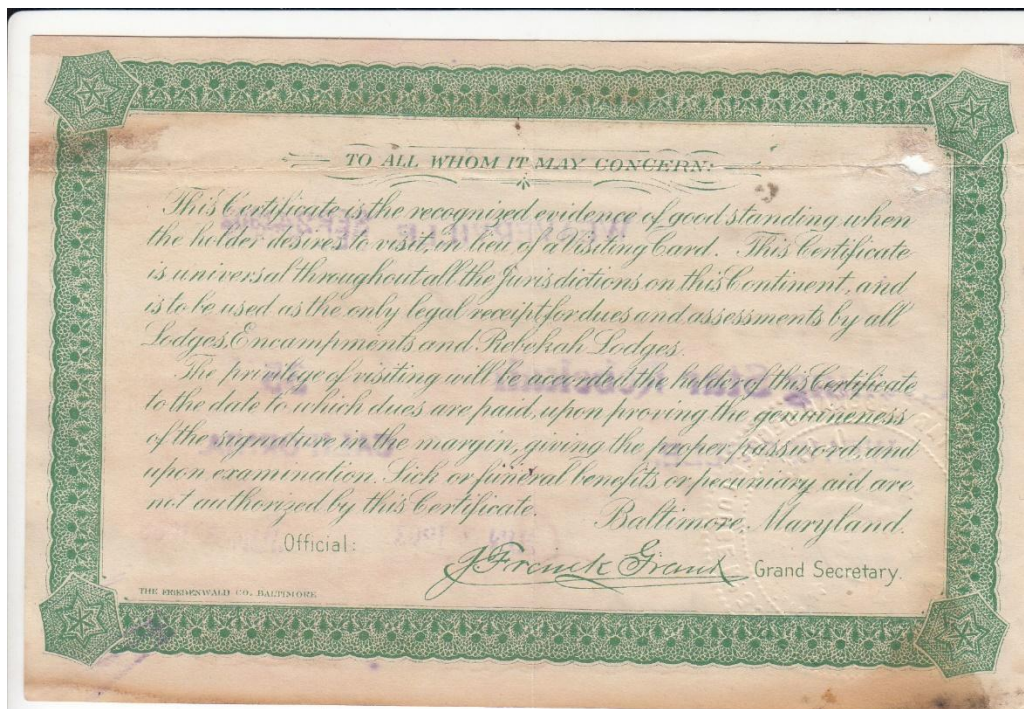 TO ALL WHOM IT MAY CONCERN:
This Certificate is the recognized evidence of good standing when
the holder desires to visit, in lieu of a Visiting Card. This Certificate
is universal throughout all the Jurisdictions on this Continent, and
is to be used as the only legal receipt for dues and assessments by all
Lodges, Encampments and Rebekah Lodges.
The privilege of visiting will be accorded the holder of this Certificate
to the date to which dues are paid, upon proving the genuineness
of the signature in the margin, giving the proper password, and
upon examination. Sick or funeral benefits or pecuniary aid are
not authorized by this Certificate.
Baltimore, Maryland.
Official:
J Frank Grant Grand Secretary.
THE FRIEDENWALD CO., BALTIMORE